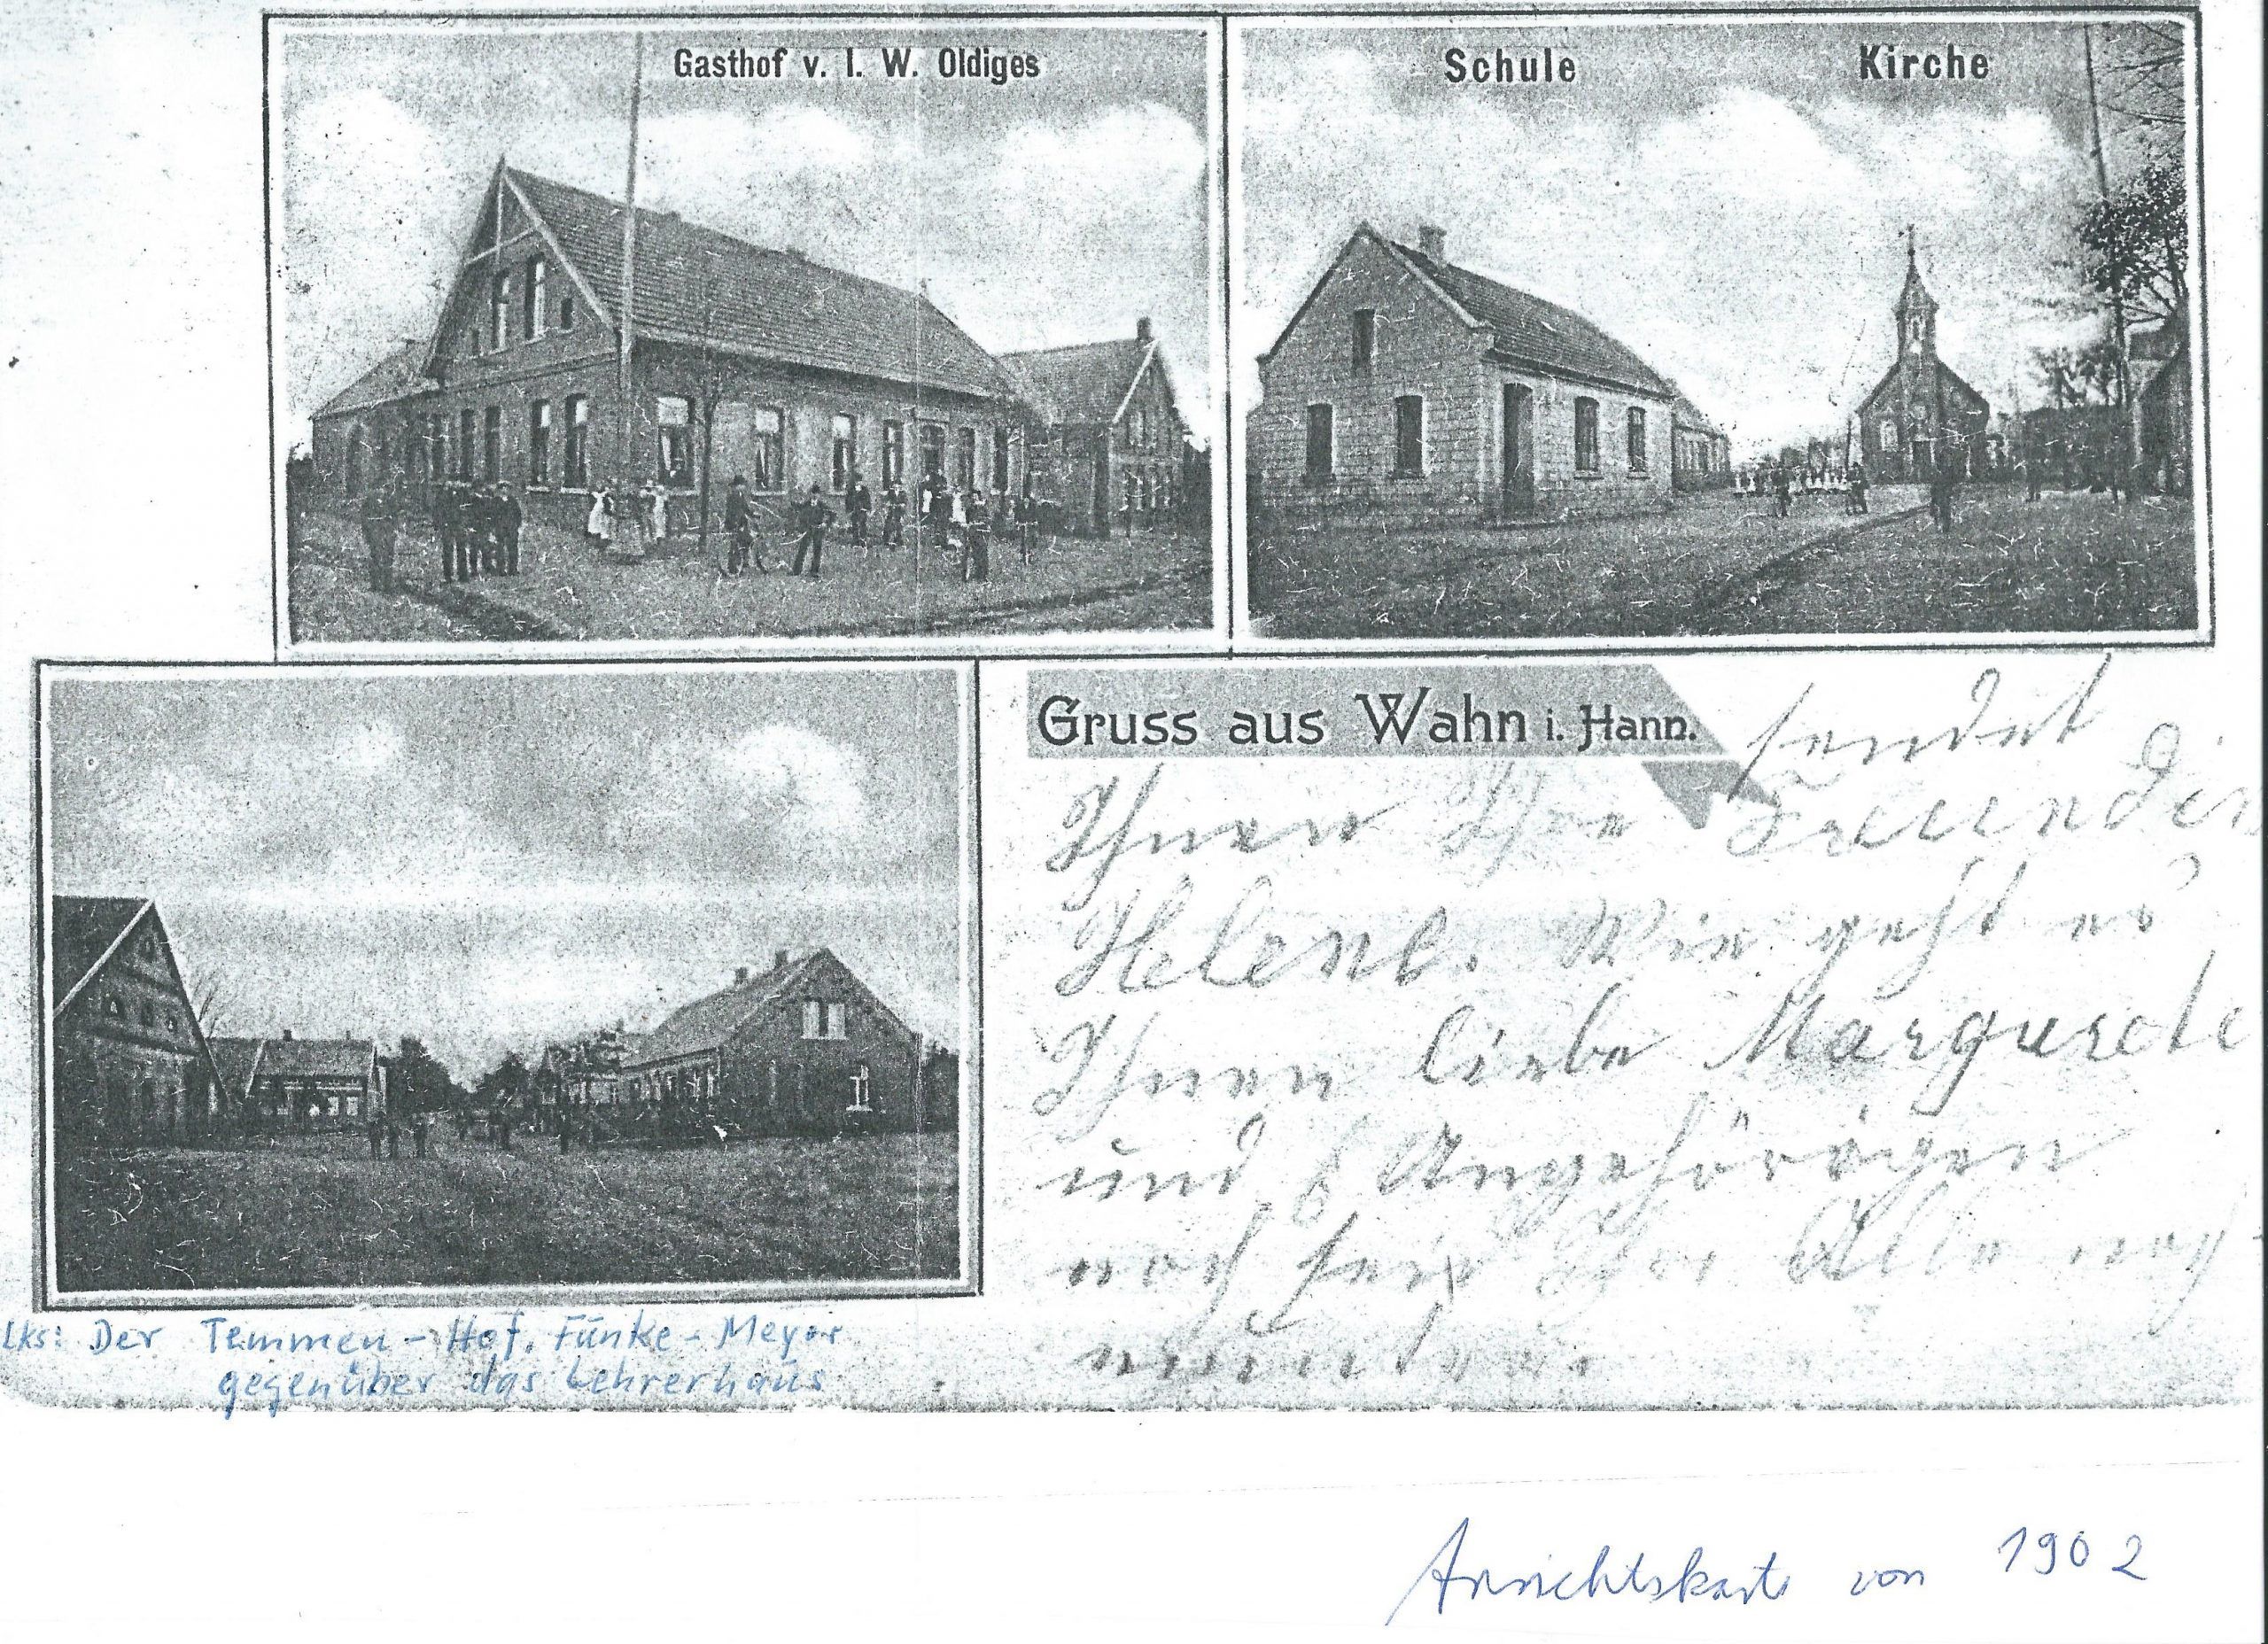 Gasthof v. I. W. Oldiges
Schule Kirche
Gruss aus Wahn i. Hann.
sendet
Ihnen Ihre Freundin
Helene. Wie geht es
Ihnen liebe Margurete
und Angehörigen
noch seid Ihr Alle noch
munter.
Lks: Der Temmen-Hof. Fünke-Meyer
gegenüber das Lehrerhaus
Ansichtskarte von 1902